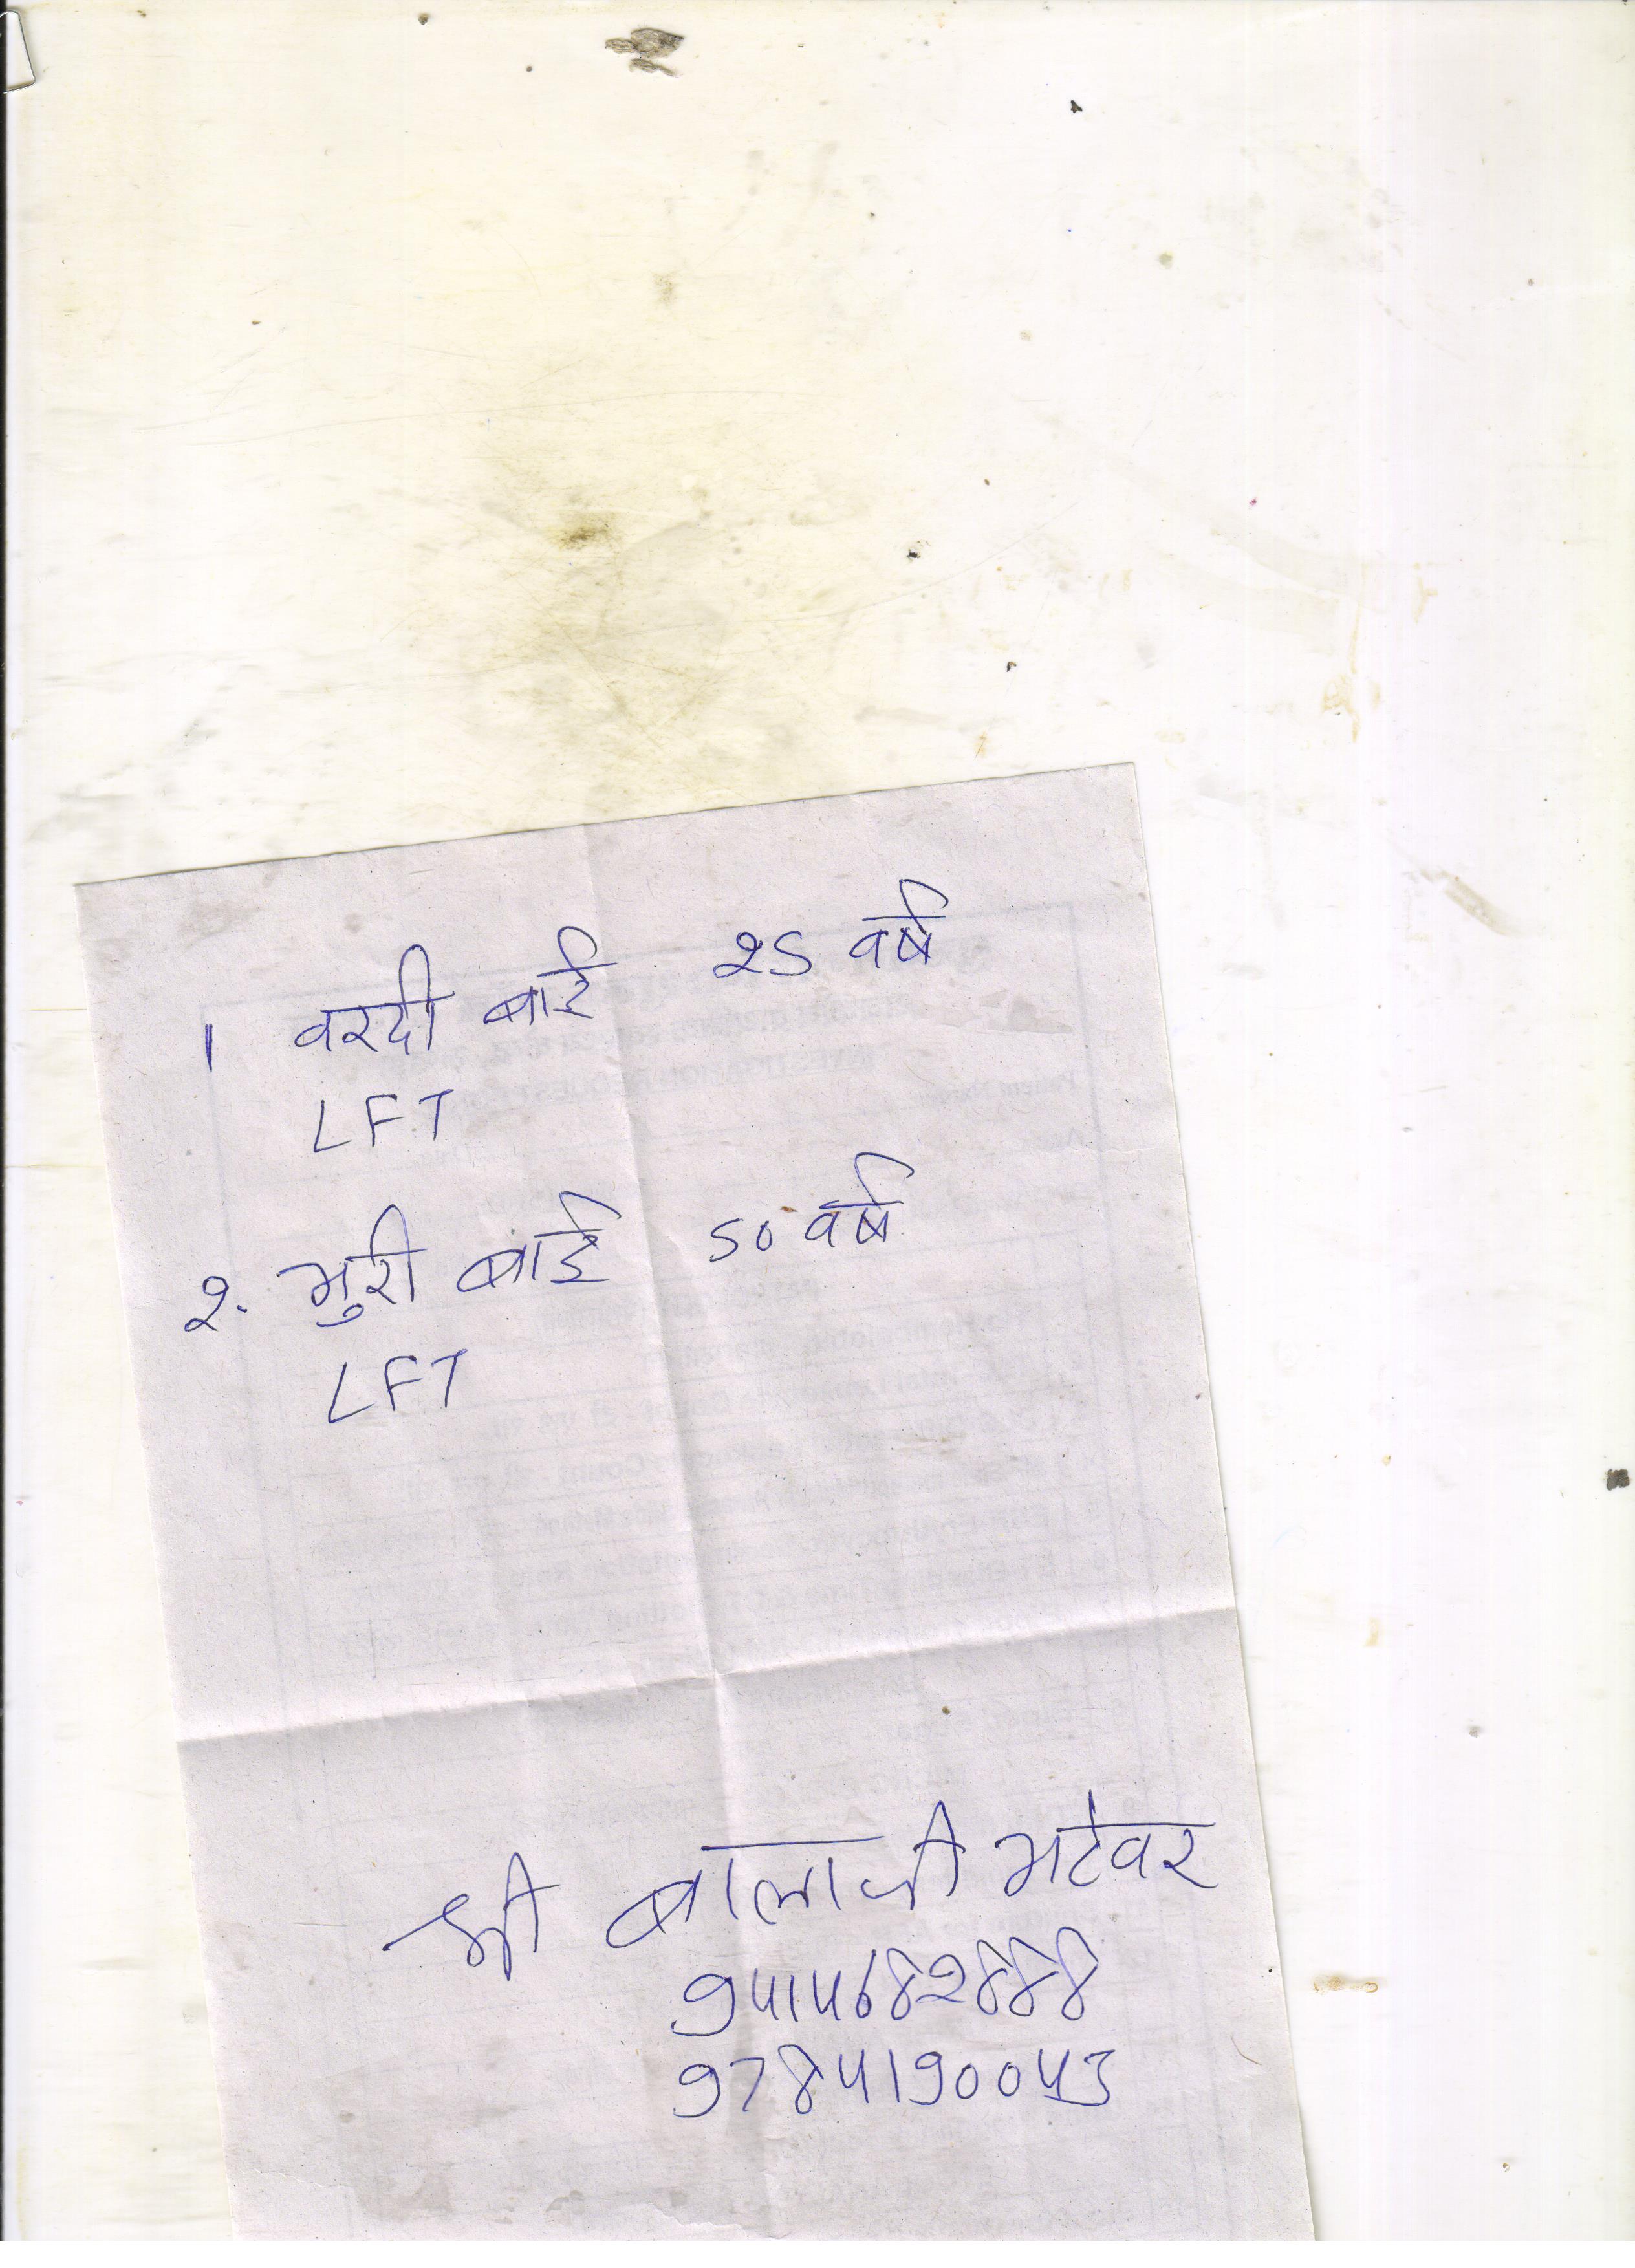 1 वरदी बाई 25 वर्ष
LFT
2. भुरी बाई 50 वर्ष
LFT
श्री बालाजी भटेवर
9414682888
9784190043